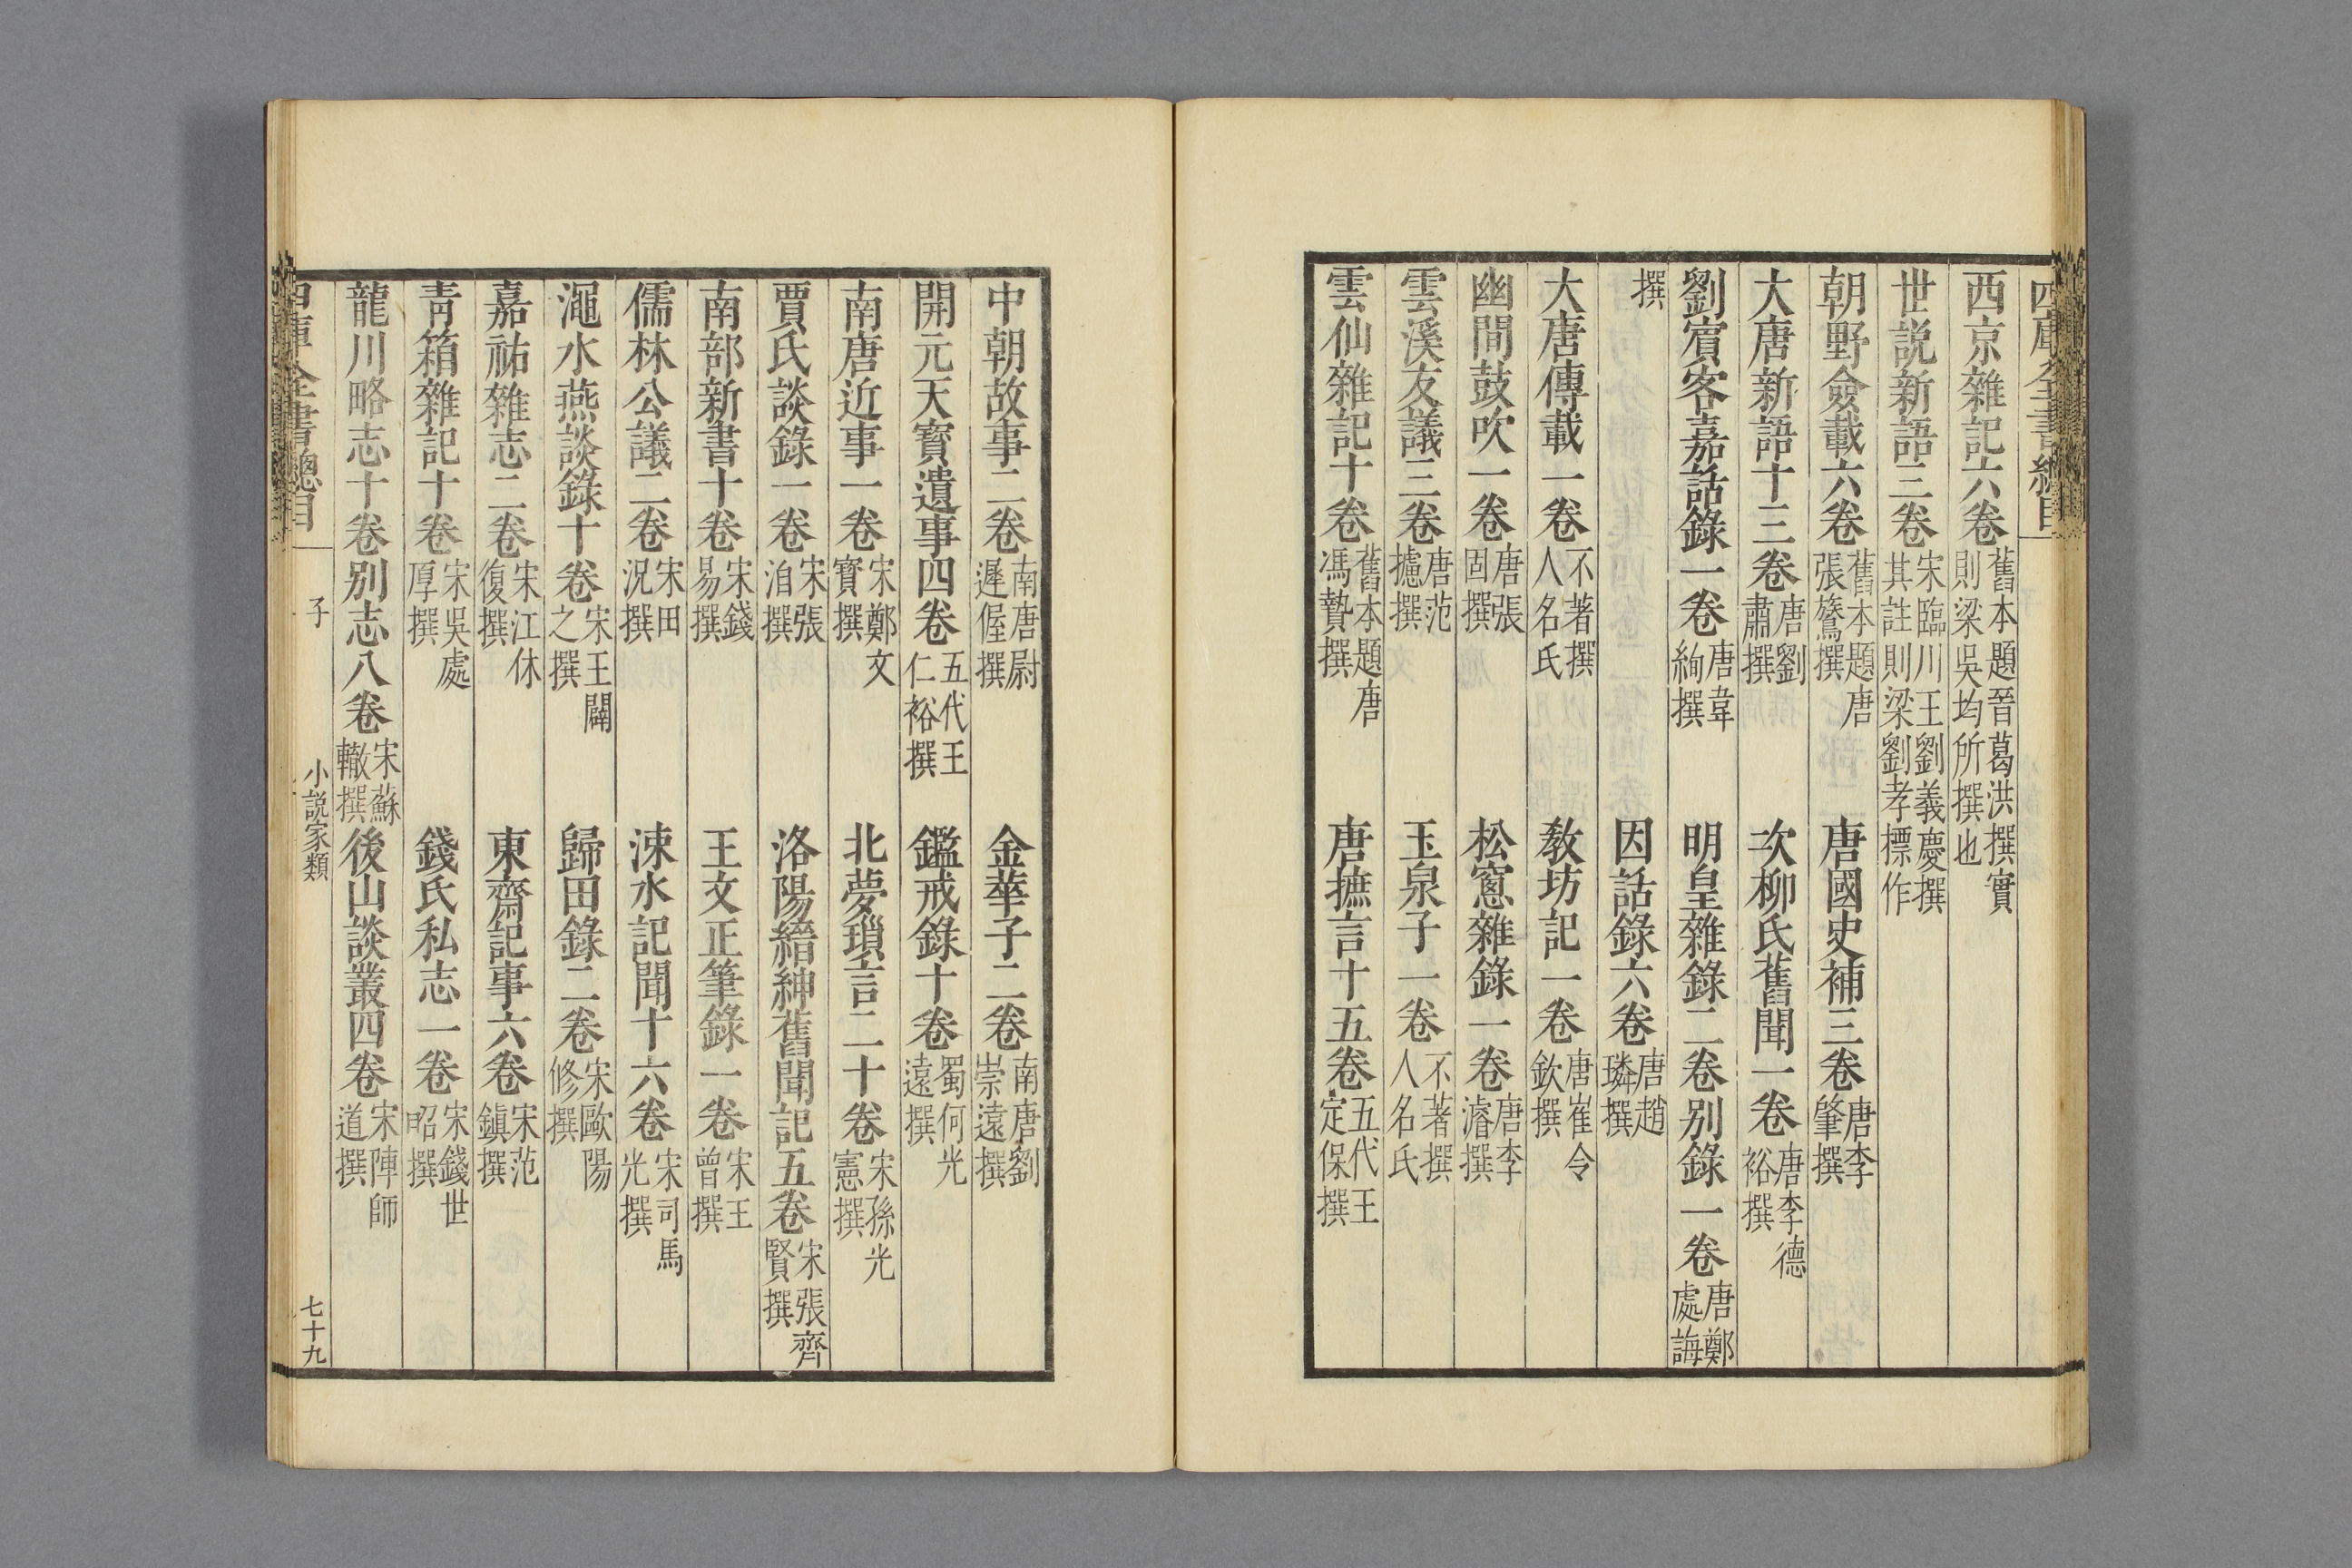 四庫全書總目
西京雜記六卷舊本題晉葛洪撰實則梁吳均所撰也
世説新語三卷宋臨川王劉義慶撰其註則梁劉孝標作
朝野僉載六卷舊本題唐張鷟撰 唐國史補三卷唐李肇撰
大唐新語十三卷唐劉肅撰 次柳氏舊聞一卷唐李德裕撰
劉賓客嘉話錄一卷唐韋絢撰 明皇雜錄二卷別錄一卷唐鄭處誨
撰 因話錄六卷唐趙璘撰
大唐傳載一卷不著撰人名氏 教坊記一卷唐崔令欽撰
幽閒鼓吹一卷唐張固撰 松窻雜錄一卷唐李濬撰
雲溪友議三卷唐范攄撰 玉泉子一卷不著撰人名氏
雲仙雜記十卷舊本題唐馮贄撰 唐摭言十五卷五代王定保撰
中朝故事二卷南唐尉遲偓撰 金華子二卷南唐劉崇遠撰
開元天寶遺事四卷五代王仁裕撰 鑑戒錄十卷蜀何光遠撰
南唐近事一卷宋鄭文寶撰 北夢瑣言二十卷宋孫光憲撰
賈氏談錄一卷宋張洎撰 洛陽縉紳舊聞記五卷宋張齊賢撰
南部新書十卷宋錢易撰 王文正筆錄一卷宋王曾撰
儒林公議二卷宋田況撰 涑水記聞十六卷宋司馬光撰
澠水燕談錄十卷宋王闢之撰 歸田錄二卷宋歐陽修撰
嘉祐雜志二卷宋江休復撰 東齋記事六卷宋范鎮撰
青箱雜記十卷宋吳處厚撰 錢氏私志一卷宋錢世昭撰
龍川略志十卷別志八卷宋蘇轍撰 後山談叢四卷宋陳師道撰
四庫全書總目 子 小説家類 七十九